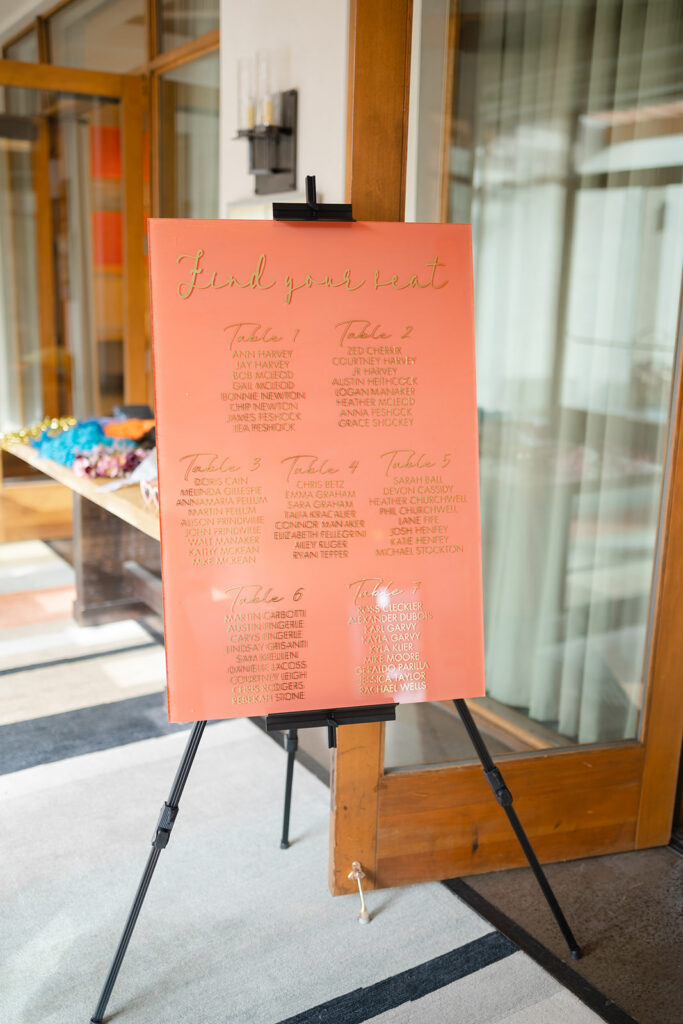 Find your seat
Table 1
ANN HARVEY
JAY HARVEY
BOB MCLEOD
GAIL MCLEOD
BONNIE NEWTON
CHIP NEWTON
JAMES PESHOCK
LEA PESHOCK
Table 2
ZED CHERRIX
COURTNEY HARVEY
JR HARVEY
AUSTIN HEITHCOCK
LOGAN MANAKER
HEATHER MCLEOD
ANNA PESHOCK
GRACE SHOCKEY
Table 3
DORIS CAIN
MELINDA GILLESPIE
ANNAMARIA PELLUM
MARTIN PELLUM
ALISON PRINDIVILLE
JOHN PRINDIVILLE
WALT MANAKER
KATHY MCKEAN
MIKE MCKEAN
Table 4
CHRIS BETZ
EMMA GRAHAM
SARA GRAHAM
TALIA KRACAUER
CONNOR MANAKER
ELIZABETH PELLEGRINI
AILEY RUGER
RYAN TEPPER
Table 5
SARAH BALL
DEVON CASSIDY
HEATHER CHURCHWELL
PHIL CHURCHWELL
LANE FIFE
JOSH HENFEY
KATIE HENFEY
MICHAEL STOCKTON
Table 6
MARTIN CARBOTTI
AUSTIN FINGERLE
CARYS FINGERLE
LINDSAY GRISANTI
SAM KILLIEN
DANIELLE LACOSS
COURTNEY LEIGH
CHRIS RODGERS
REBEKAH STONE
Table 7
ROSS CLECKLER
ALEXANDER DUBOIS
KARL GARVY
KAYLA GARVY
KYLA KLIER
MIKE MOORE
GERALDO PARILLA
JESSICA TAYLOR
RACHAEL WELLS